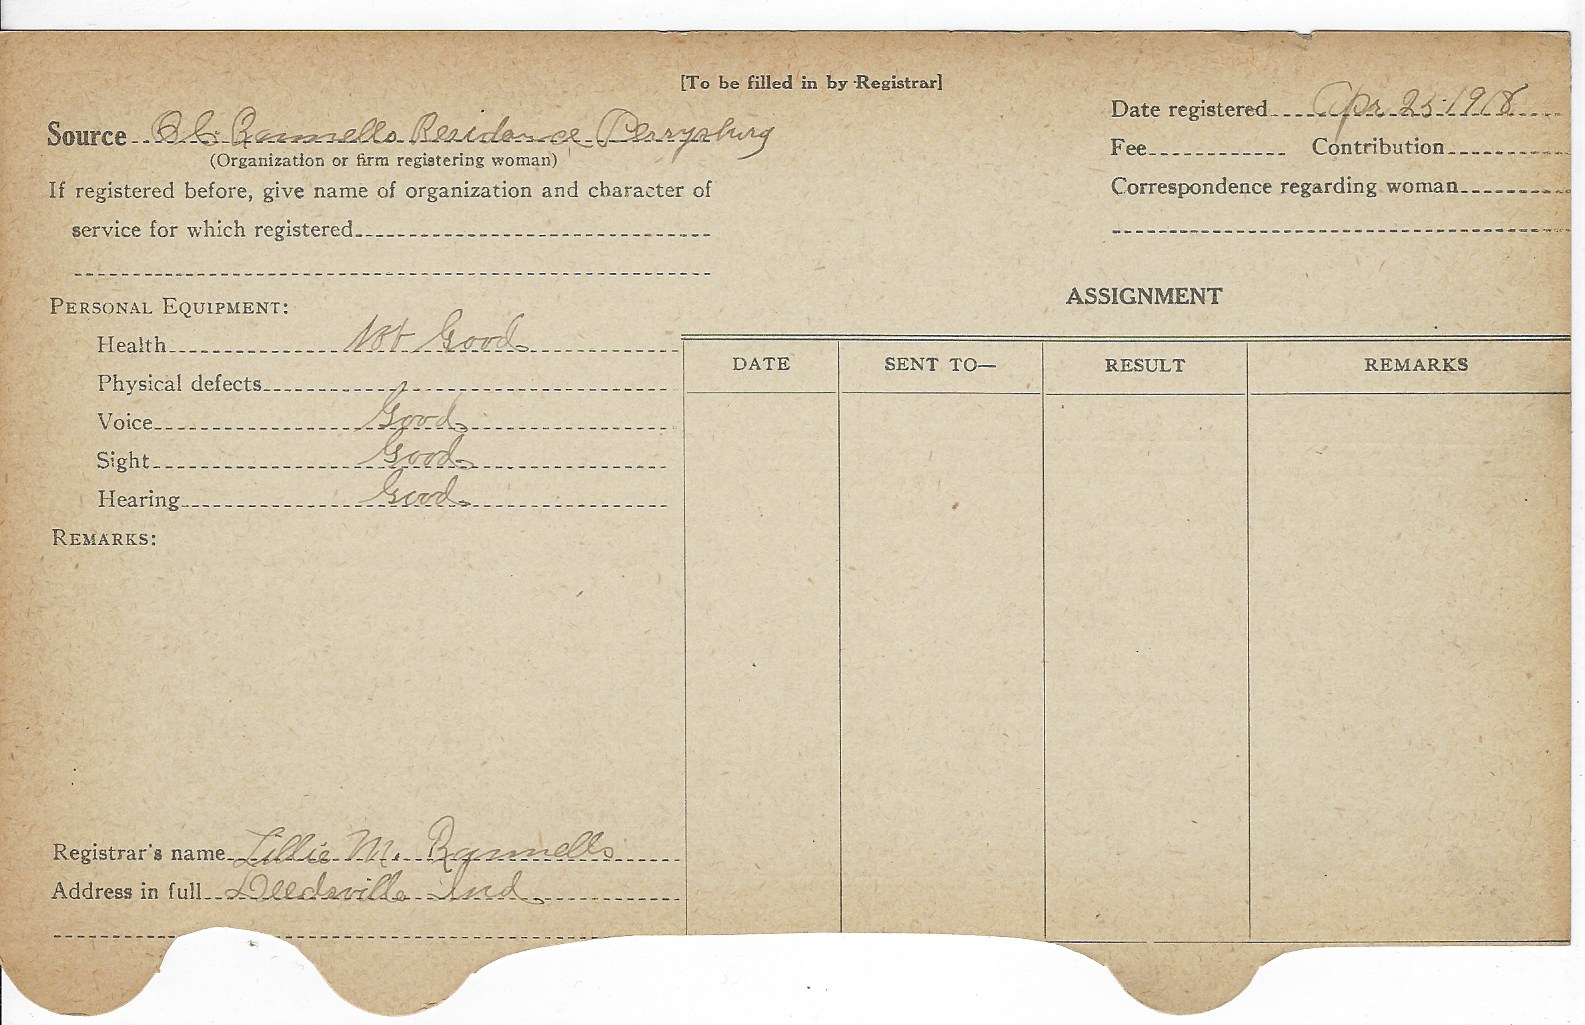 [To be filled in by Registrar]
Date registered Apr 25-1918
Source Rannells Residence Perrysburg
(Organization or firm registering woman)
Fee Contribution
If registered before, give name of organization and character of
Correspondence regarding woman
service for which registered
PERSONAL EQUIPMENT:
ASSIGNMENT
Health Not Good
DATE SENT TO— RESULT REMARKS
Physical defects
Voice Good
Sight Good
Hearing Good
REMARKS:
Registrar's name Lillie M. Rannells
Address in full Deedsville Ind